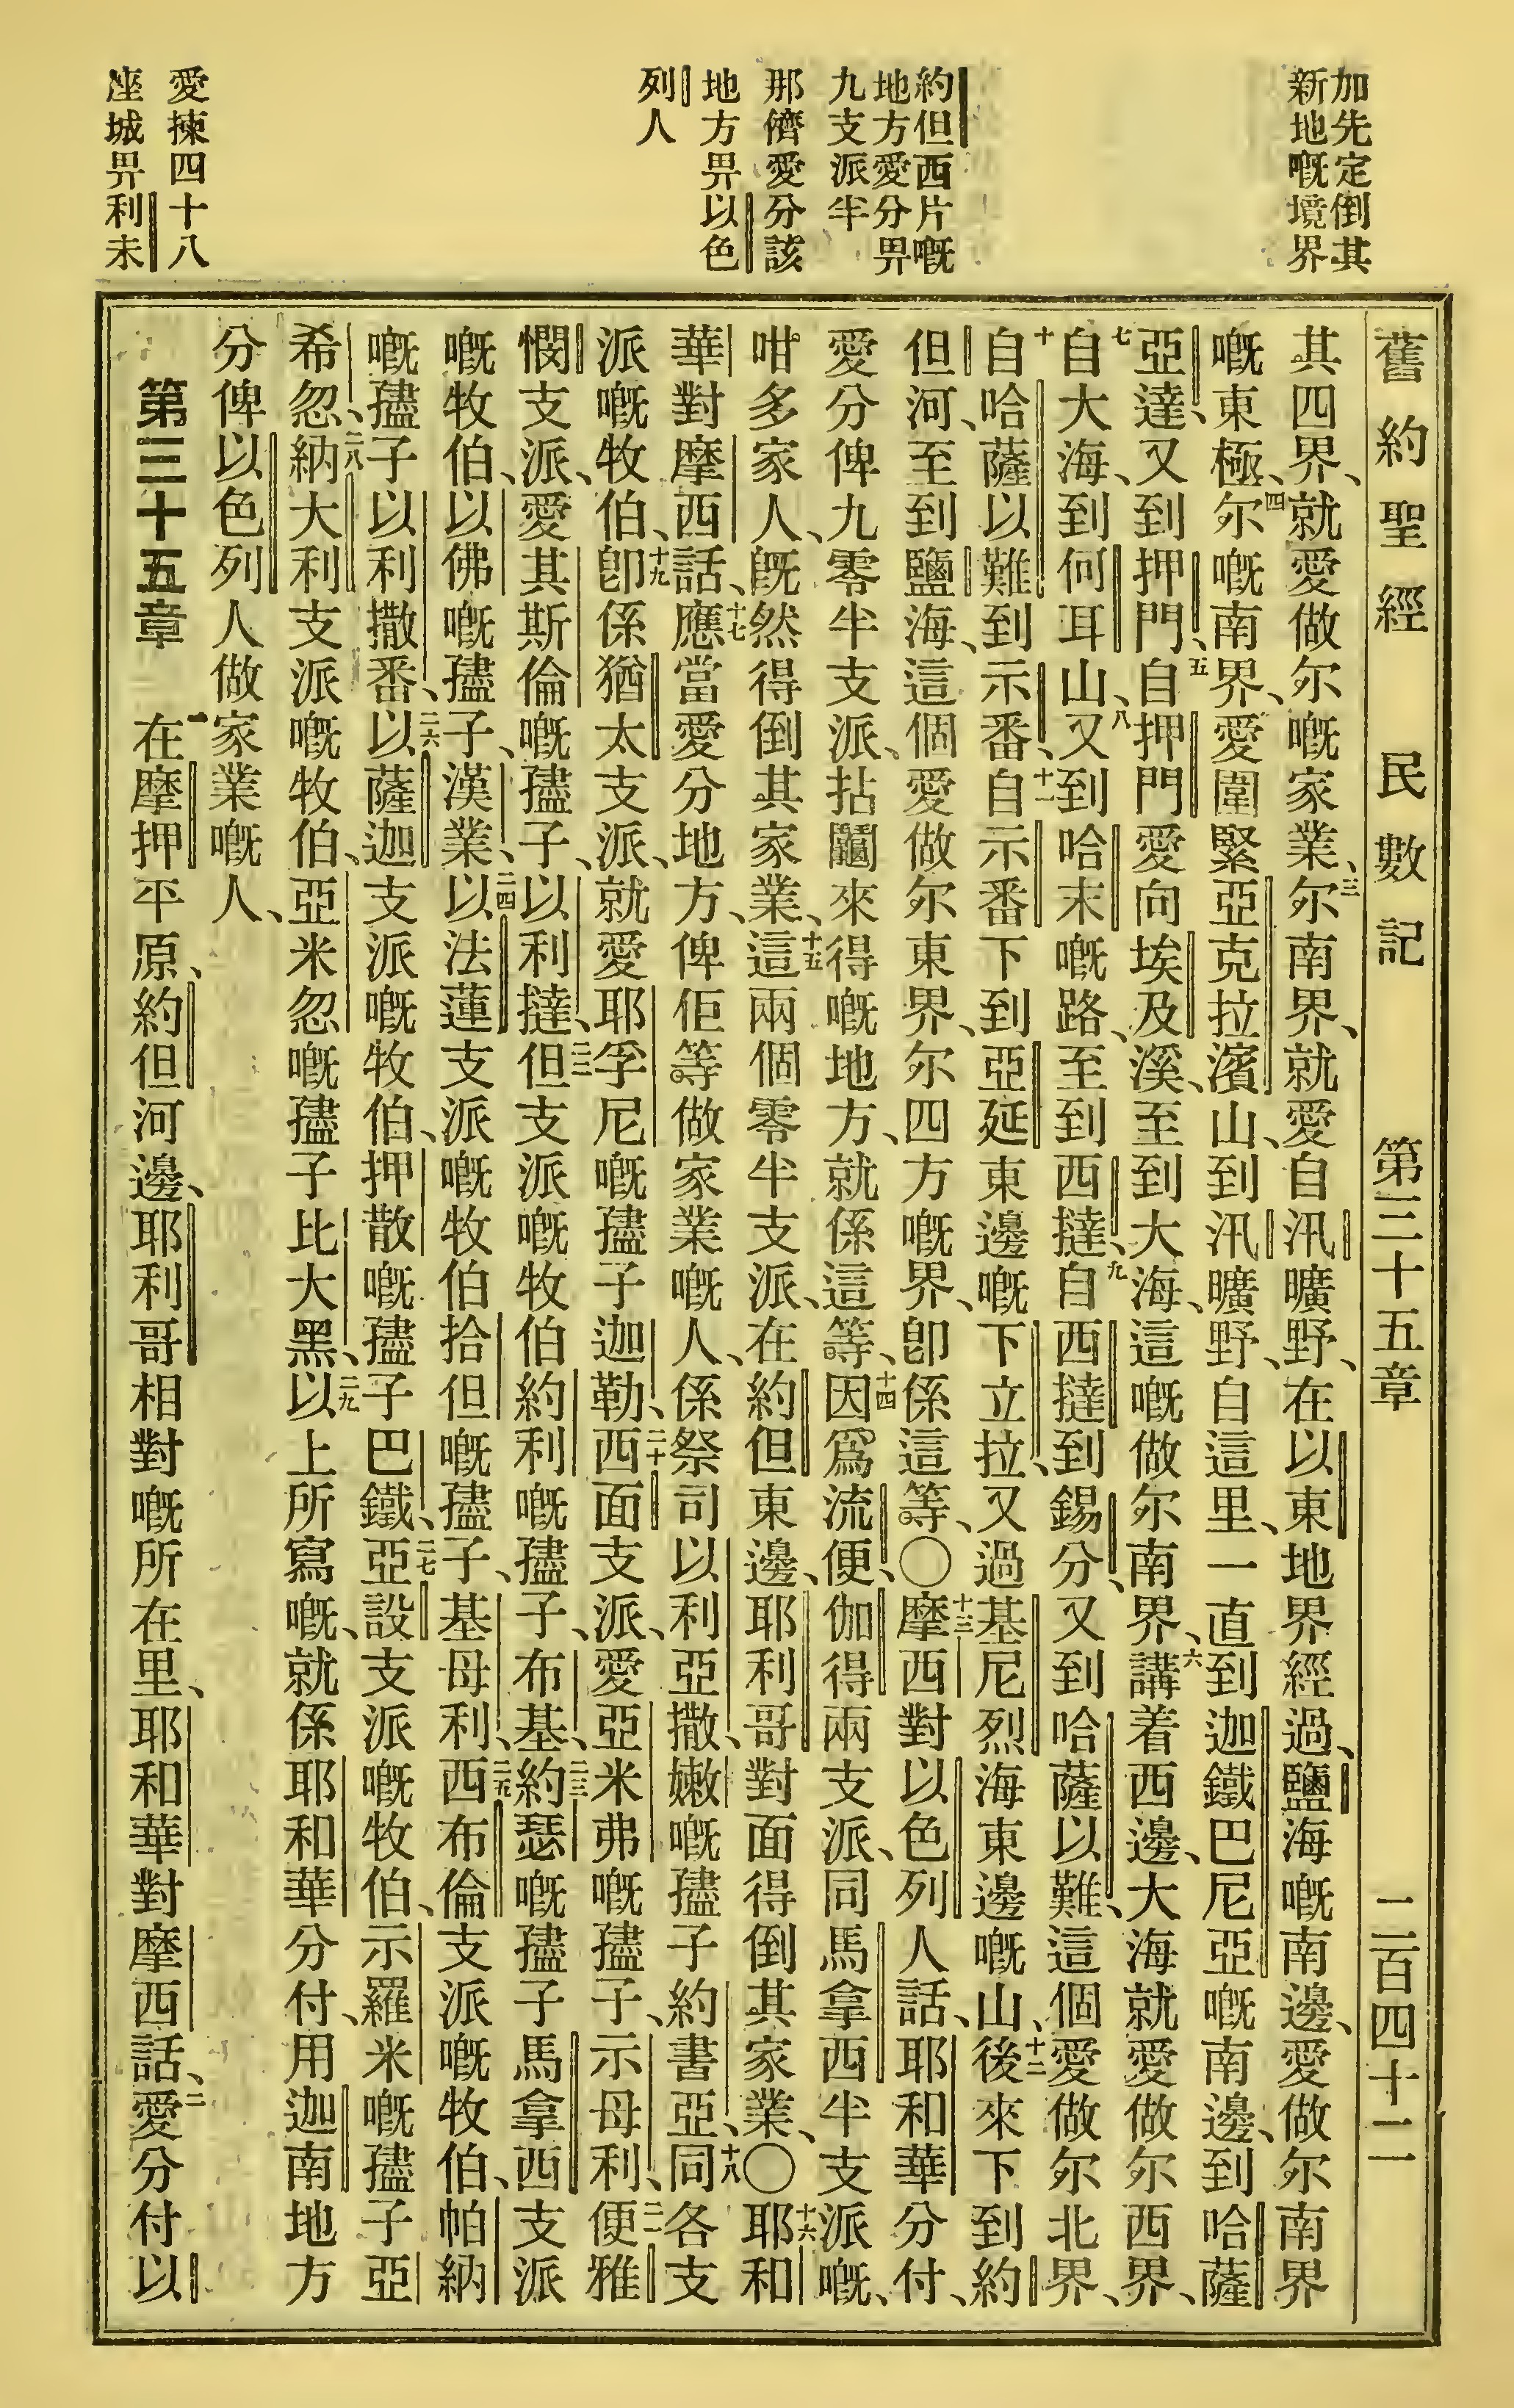 加先定倒其
新地嘅境界
約但西片嘅
地方愛分畀
九支派半
那儕愛分該
地方畀以色
列人
愛揀四十八
座城畀利未
舊約聖經 民數記 第三十五章 二百四十二
其四界、就愛做尔嘅家業、三尔南界、就愛自汛曠野、在以東地界經過、鹽海嘅南邊、愛做尔南界
嘅東極、四尔嘅南界、愛圍緊亞克拉濱山、到汛曠野、自這里、一直到迦鐵巴尼亞嘅南邊、到哈薩
亞達、又到押門、五自押門愛向埃及溪、至到大海、這嘅做尔南界、六講着西邊、大海就愛做尔西界、
七自大海、到何耳山、八又到哈末嘅路、至到西撻、九自西撻到錫分、又到哈薩以難、這個愛做尔北界、
十自哈薩以難到示番、十一自示番下到亞延東邊嘅下立拉、又過基尼烈海東邊嘅山、十二後來下到約
但河、至到鹽海、這個愛做尔東界、尔四方嘅界、卽係這等、〇十三摩西對以色列人話、耶和華分付、
愛分俾九零半支派、拈鬮來得嘅地方、就係這等、十四因爲流便、伽得兩支派、同馬拿西半支派嘅、
咁多家人、旣然得倒其家業、十五這兩個零半支派、在約但東邊、耶利哥對面得倒其家業、〇十六耶和
華對摩西話、十七應當愛分地方、俾佢等做家業嘅人、係祭司以利亞撒、嫩嘅孻子約書亞、十八同各支
派嘅牧伯、十九卽係猶太支派、就愛耶孚尼嘅孻子迦勒、二十西面支派、愛亞米弗嘅孻子、示母利、二一便雅
憫支派、愛其斯倫嘅孻子、以利撻、二二但支派嘅牧伯約利嘅孻子、布基、二三約瑟嘅孻子馬拿西支派
嘅牧伯、以佛嘅孻子、漢業、二四以法蓮支派嘅牧伯拾但嘅孻子、基母利、二五西布倫支派嘅牧伯、帕納
嘅孻子以利撒番、二六以薩迦支派嘅牧伯、押散嘅孻子巴鐵、二七亞設支派嘅牧伯、示羅米嘅孻子亞
希忽、二八納大利支派嘅牧伯、亞米忽嘅孻子比大黑、二九以上所寫嘅、就係耶和華分付、用迦南地方
分俾以色列人做家業嘅人、
第三十五章 一在摩押平原、約但河邊、耶利哥相對嘅所在里、耶和華對摩西話、二愛分付以